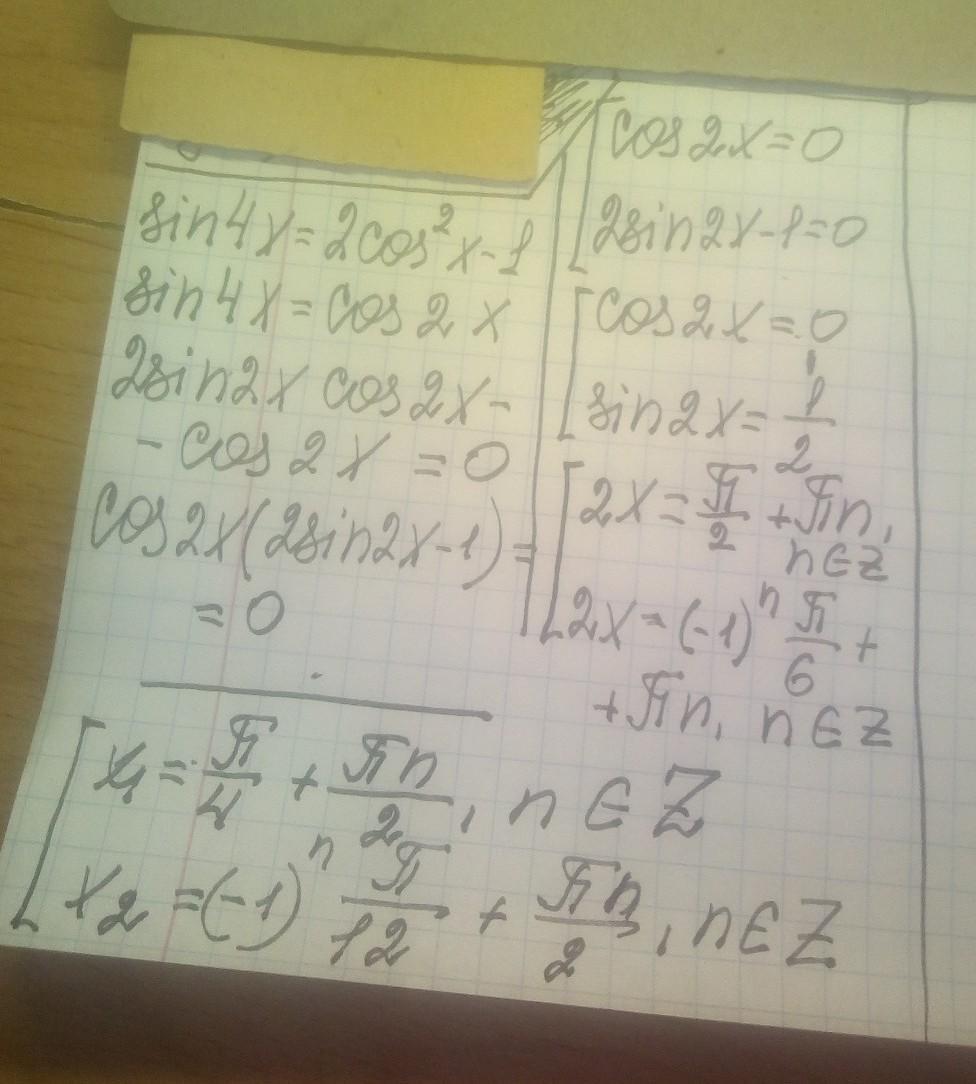 sin4x=2cos²x-1
sin4x=cos2x
2sin2x cos2x-
-cos2x=0
cos2x(2sin2x-1)=
=0
cos2x=0
2sin2x-1=0
cos2x=0
sin2x=1/2
2x=π/2+πn,
n∈Z
2x=(-1)ⁿ π/6+
+πn, n∈Z
x₁=π/4+πn/2, n∈Z
x₂=(-1)ⁿ π/12+πn/2, n∈Z